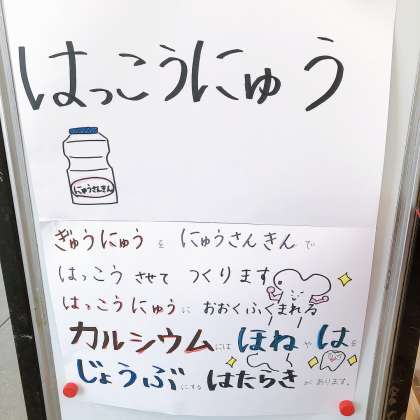 はっこうにゅう
にゅうさんきん
ぎゅうにゅう を にゅうさんきん で
はっこう させて つくります
はっこうにゅう に おおくふくまれる
カルシウム には ほね や は を
じょうぶ にする はたらき があります。